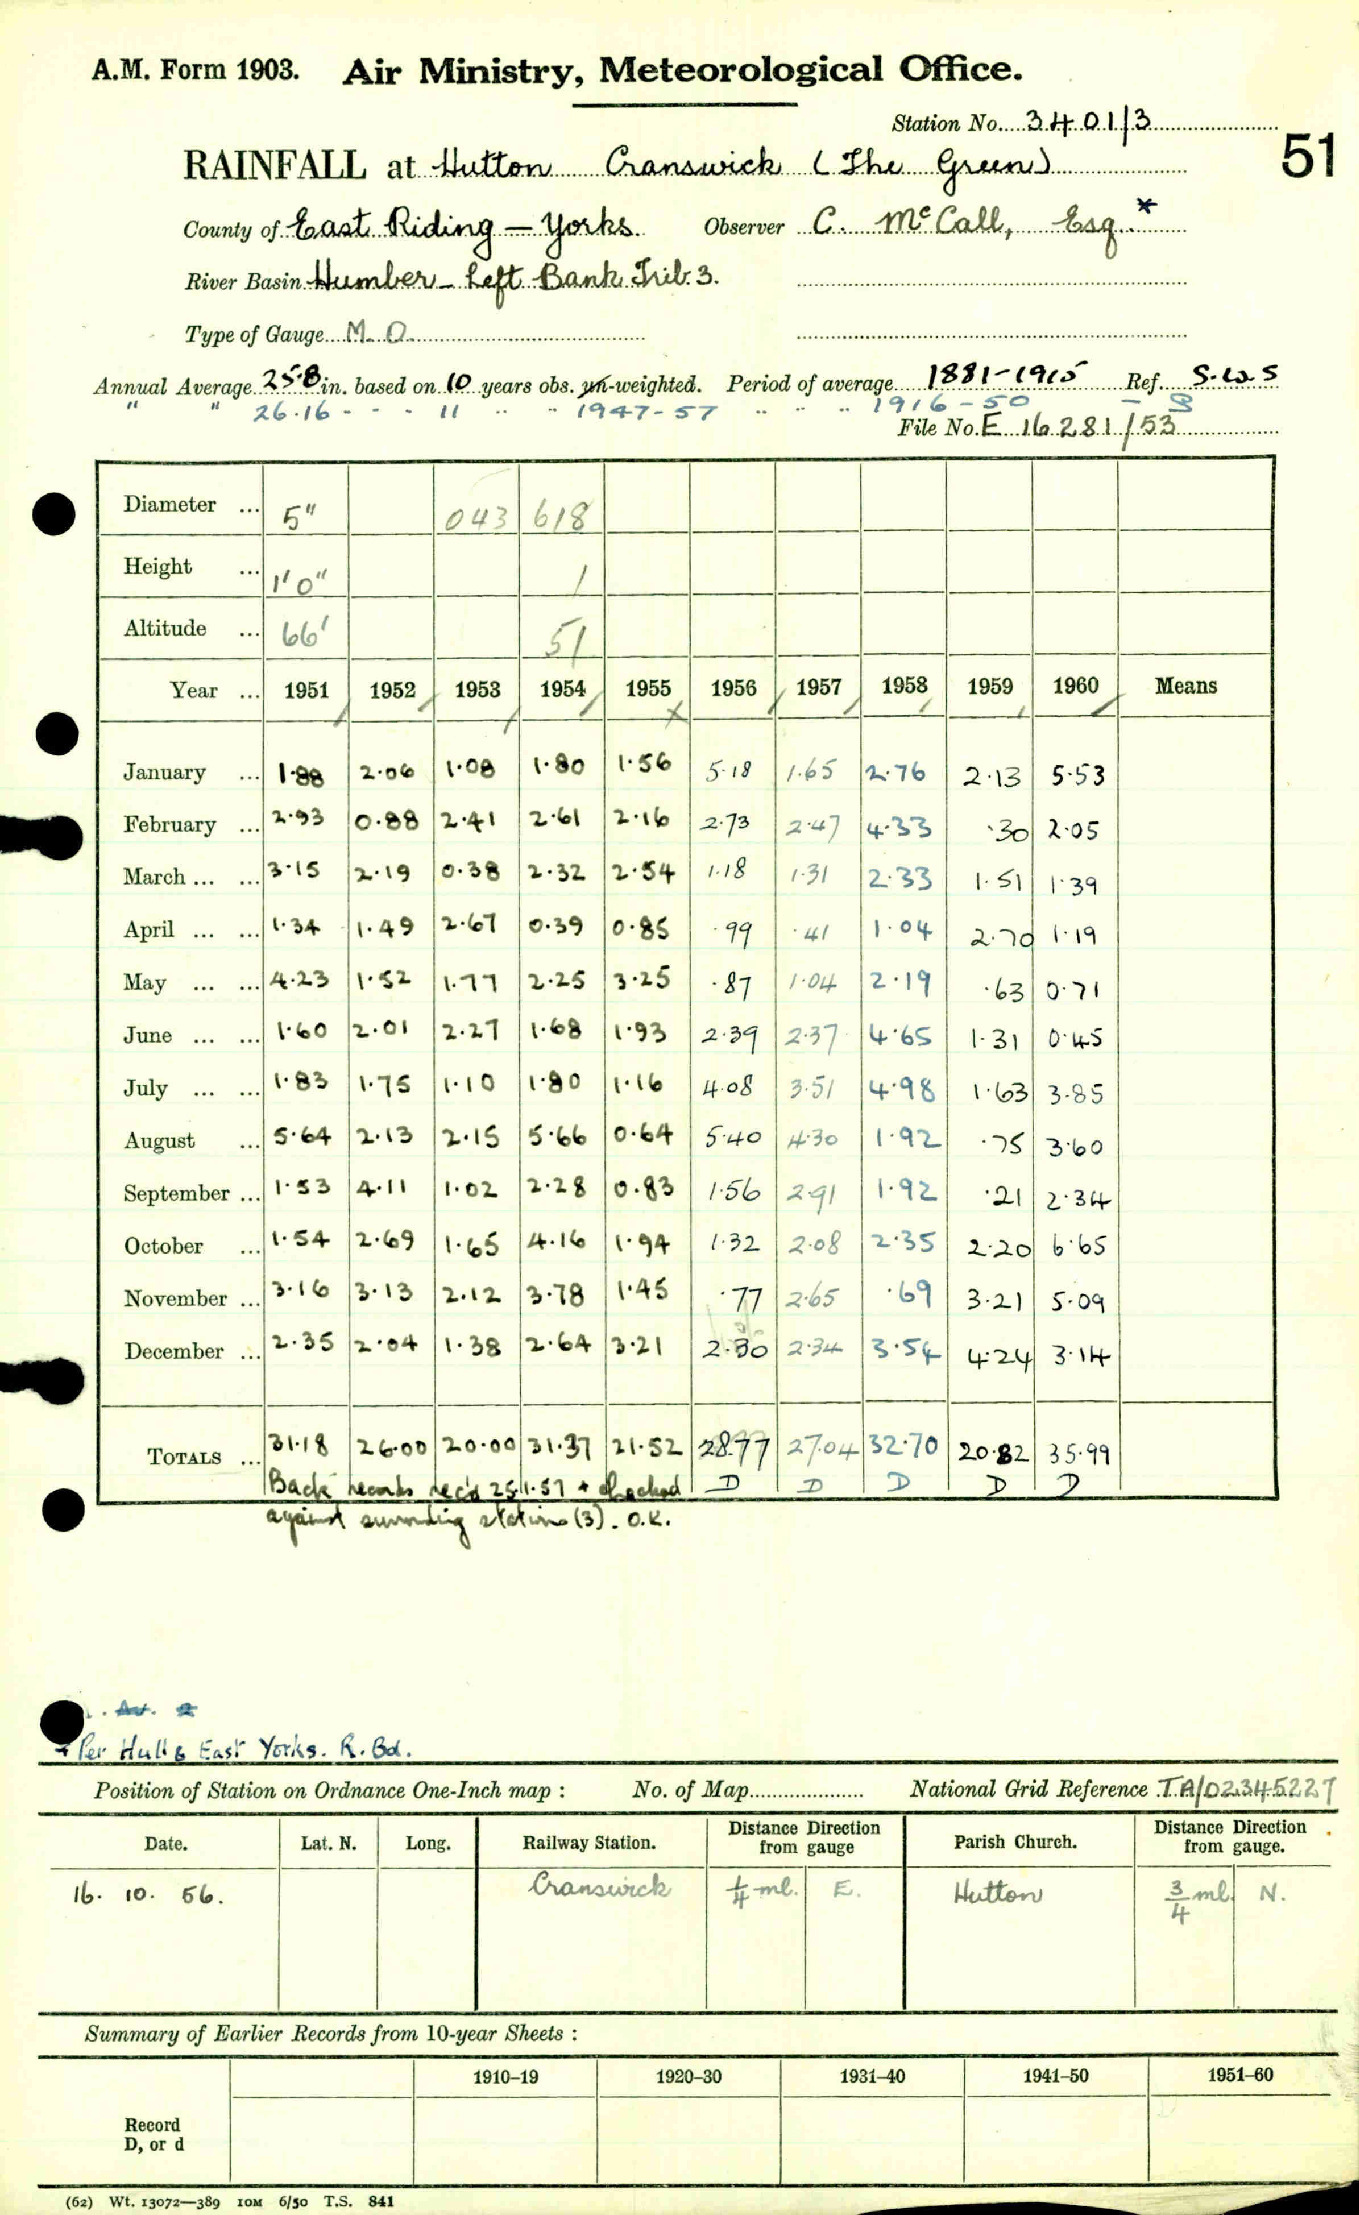 A.M. Form 1903. Air Ministry, Meteorological Office.
Station No. 3401/3
51
RAINFALL at Hutton Cranswick (The Green)
County of East Riding – Yorks. Observer C. McCall, Esq. *
River Basin Humber – Left Bank Trib. 3.
Type of Gauge M.O.
Annual Average 25.8 in. based on 10 years obs. un-weighted. Period of average 1881–1915 Ref. S.W.S
" " 26.16 - - - 11 " " 1947-57 " " " 1916-50 – B
File No. E 16281/53
Diameter ... 5" 043 618
Height ... 1'0" 1
Altitude ... 66' 51
Year ... 1951 1952 1953 1954 1955 1956 1957 1958 1959 1960 Means
January ... 1.88 2.06 1.08 1.80 1.56 5.18 1.65 2.76 2.13 5.53
February ... 2.93 0.88 2.41 2.61 2.16 2.73 2.47 4.33 .30 2.05
March ... ... 3.15 2.19 0.38 2.32 2.54 1.18 1.31 2.33 1.51 1.39
April ... ... 1.34 1.49 2.67 0.39 0.85 .99 .41 1.04 2.70 1.19
May ... ... 4.23 1.52 1.77 2.25 3.25 .87 1.04 2.19 .63 0.71
June ... ... 1.60 2.01 2.27 1.68 1.93 2.39 2.37 4.65 1.31 0.45
July ... ... 1.83 1.75 1.10 1.80 1.16 4.08 3.51 4.98 1.63 3.85
August ... 5.64 2.13 2.15 5.66 0.64 5.40 4.30 1.92 .75 3.60
September ... 1.53 4.11 1.02 2.28 0.83 1.56 2.91 1.92 .21 2.34
October ... 1.54 2.69 1.65 4.16 1.94 1.32 2.08 2.35 2.20 6.65
November ... 3.16 3.13 2.12 3.78 1.45 .77 2.65 .69 3.21 5.09
December ... 2.35 2.04 1.38 2.64 3.21 2.30 2.34 3.54 4.24 3.14
TOTALS ... 31.18 26.00 20.00 31.37 21.52 28.77 27.04 32.70 20.82 35.99
Back records rec'd 25.1.57 & checked D D D D D
against surrounding stations (3). O.K.
* Per Hull & East Yorks. R. Bd.
Position of Station on Ordnance One-Inch map : No. of Map National Grid Reference TA/02345227
Date. Lat. N. Long. Railway Station. Distance from Direction gauge Parish Church. Distance from Direction gauge.
16. 10. 56. Cranswick 1/4 ml. E. Hutton 3/4 ml. N.
Summary of Earlier Records from 10-year Sheets :
1910–19 1920–30 1931–40 1941–50 1951–60
Record
D, or d
(62) Wt. 13072—389 10M 6/50 T.S. 841